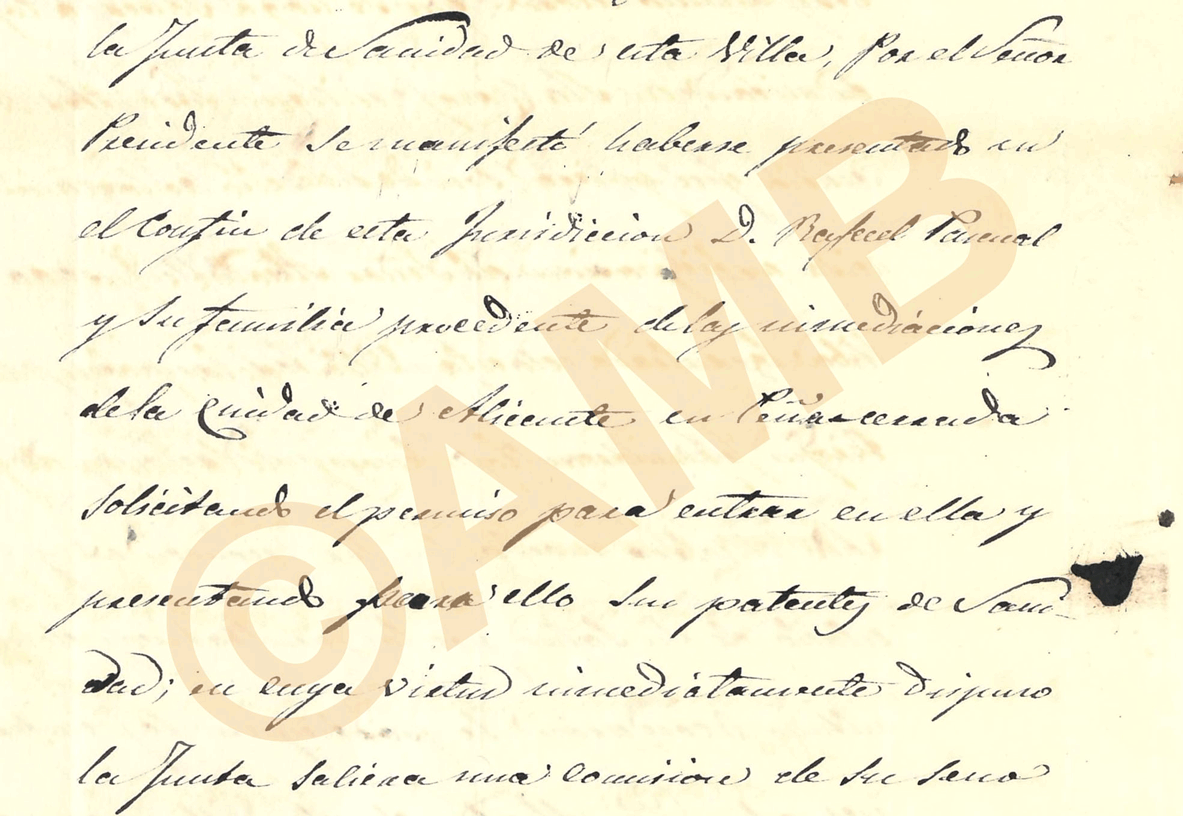 la Junta de Sanidad de esta Villa, Por el Señor
Presidente se manifestó haberse presentado en
el Confin de esta Jurisdiccion D. Rafael Pascual
y su familia procedente delas inmediaciones
dela Ciudad de Alicante en Peñacerrada
solicitando el permiso para entrar en ella y
presentando para ello sus patentes de Sani-
dad; en cuya virtud inmediatamente dispuso
la Junta saliera una comision de su seno
©AMB